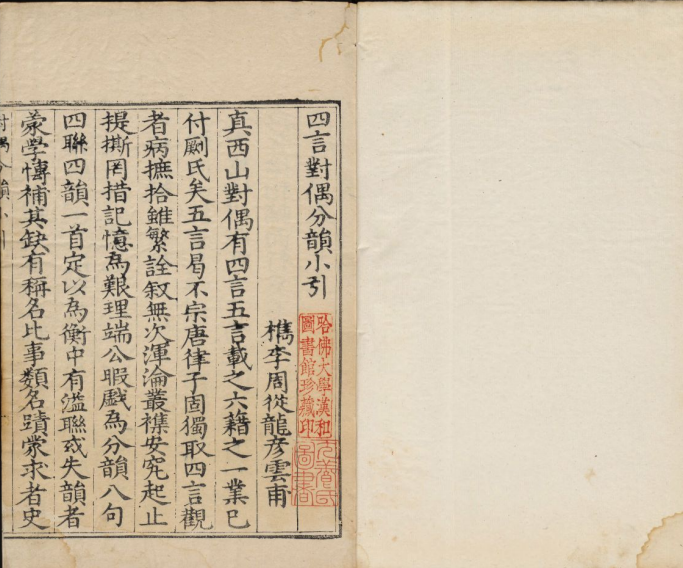 四言對偶分韻小引
檇李周從龍彥雲甫
真西山對偶有四言五言載之六籍之一業已
付劂氏矣五言曷不宗唐律子固獨取四言觀
者病摭拾雖繁詮叙無次渾淪叢襍安究起止
提撕罔措記憶為艱理端公暇戲為分韻八句
四聯四韻一首定以為衡中有溢聯或失韻者
蒙學慱補其缺有稱名比事類名蹟蒙求者史
哈佛大學漢和
圖書館珍藏印